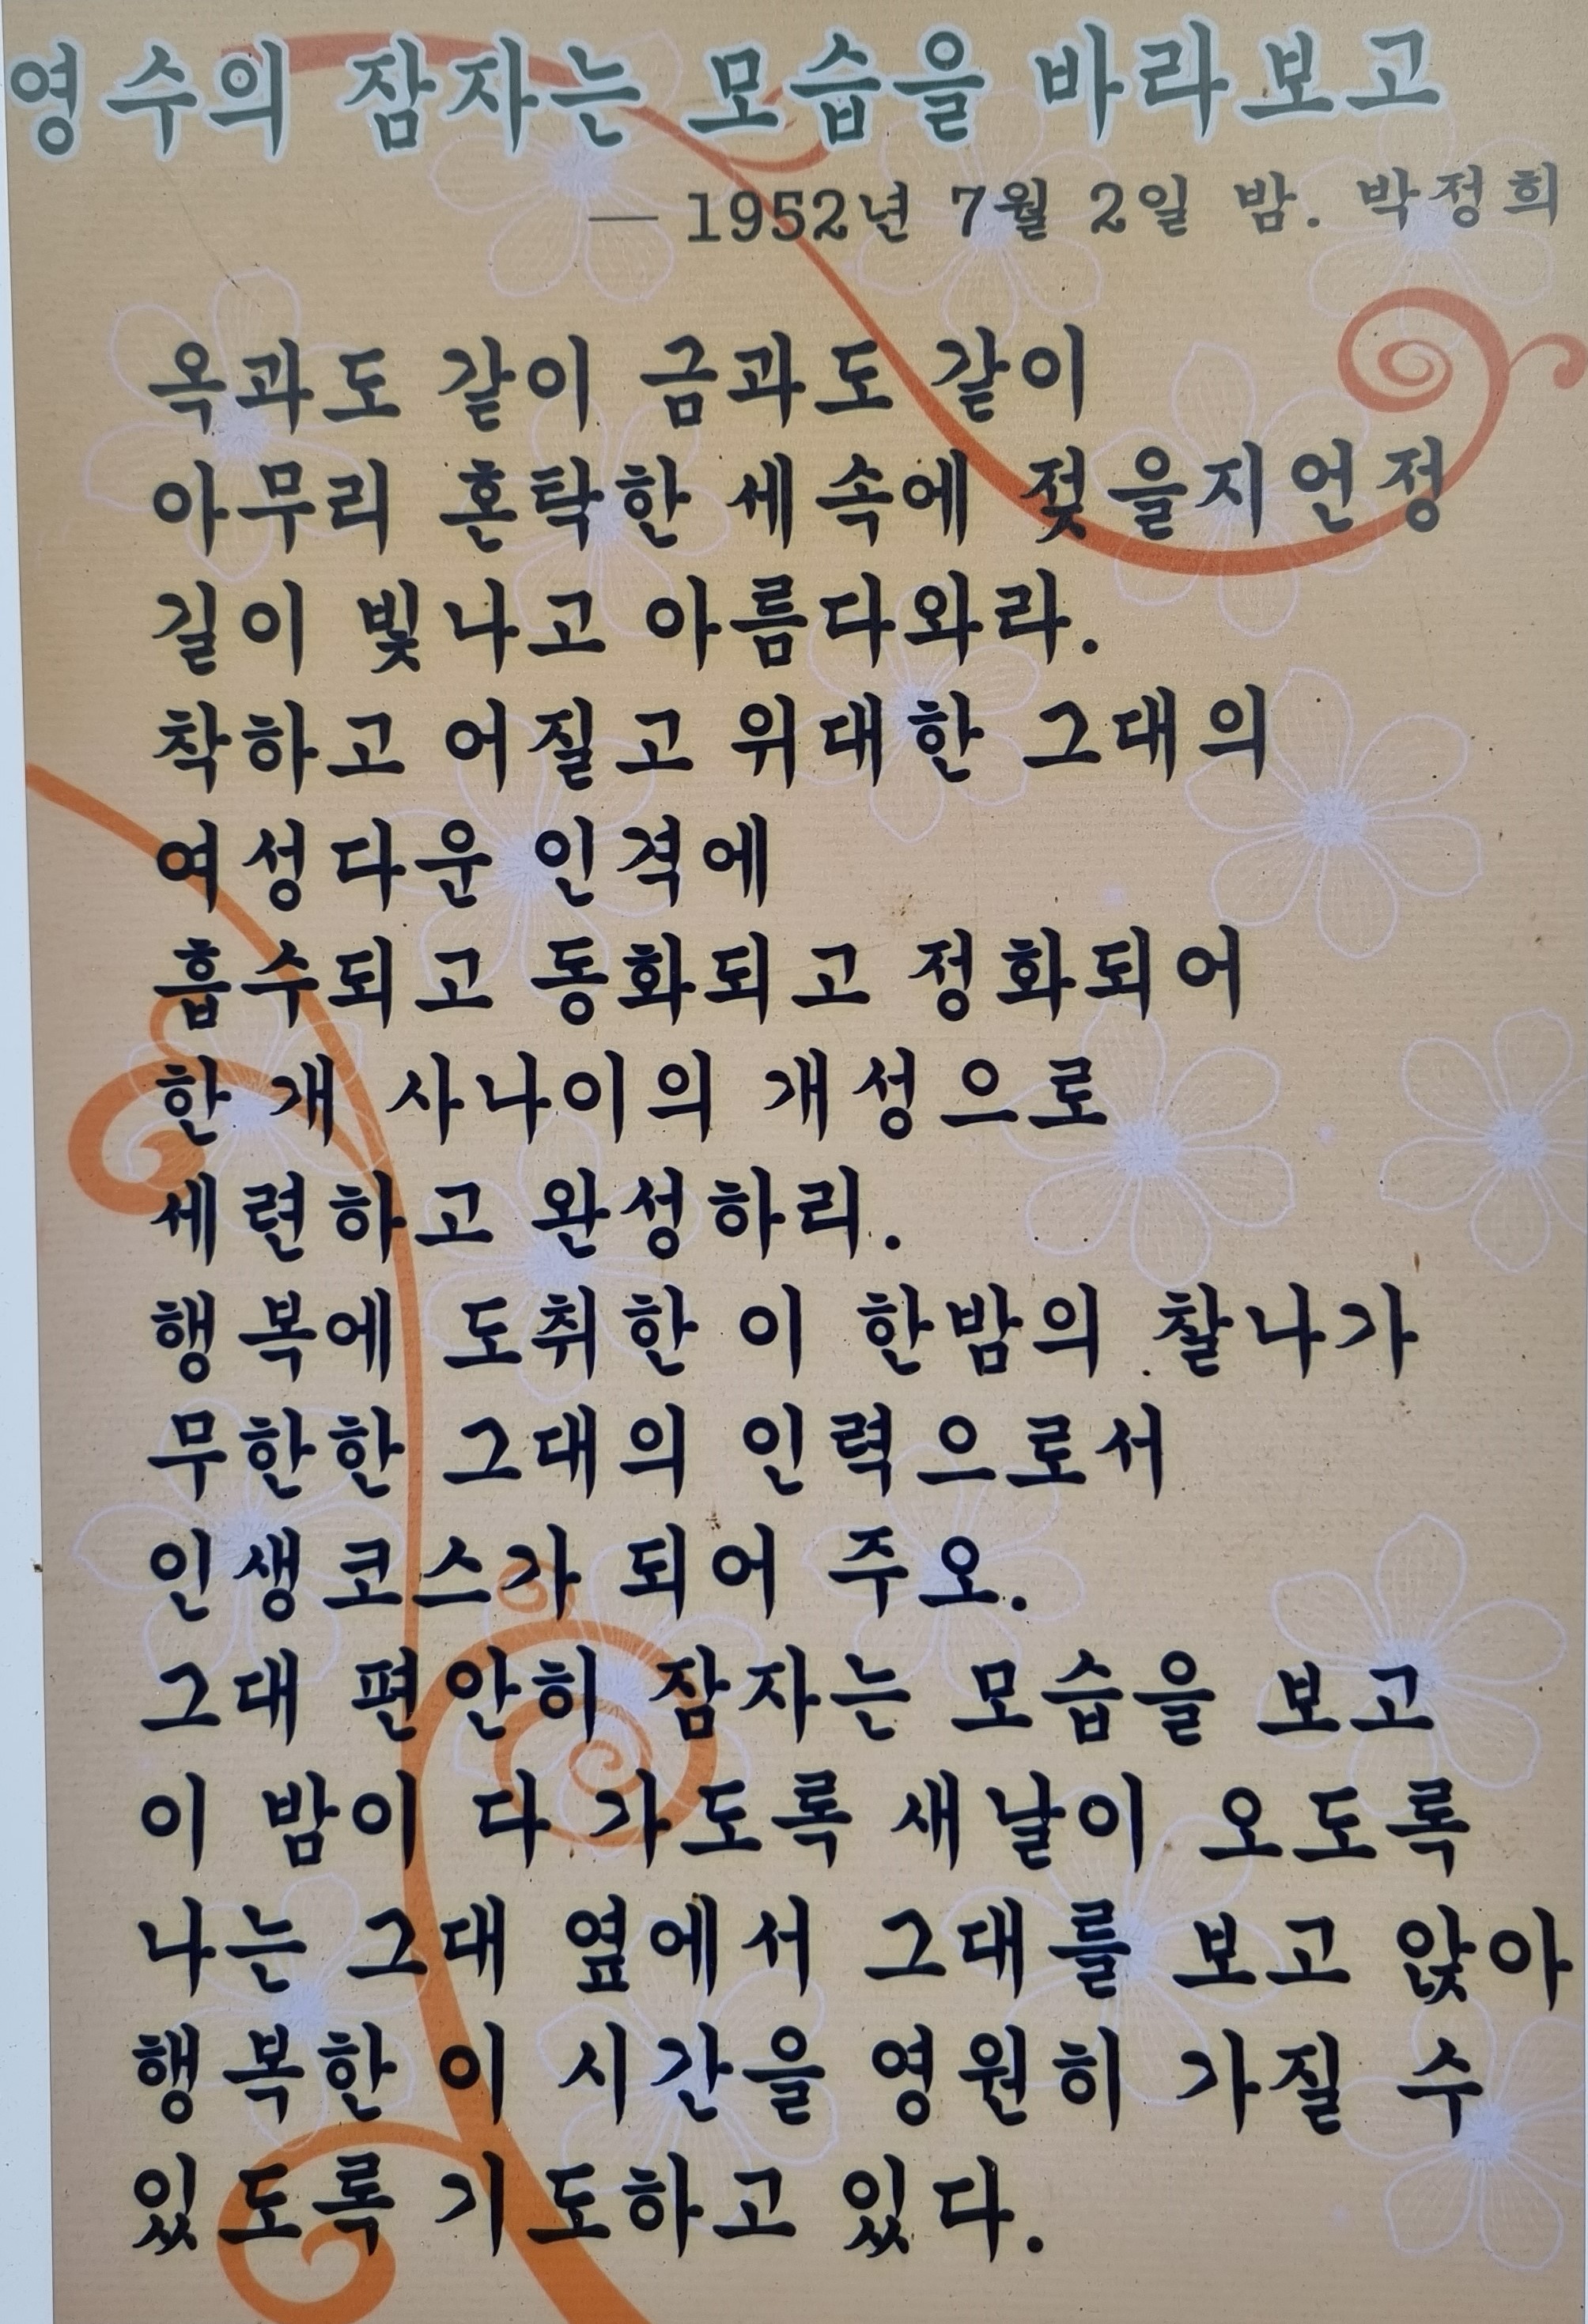 영수의 잠자는 모습을 바라보고
— 1952년 7월 2일 밤. 박정희
옥과도 같이 금과도 같이
아무리 혼탁한 세속에 젖을지언정
길이 빛나고 아름다와라.
착하고 어질고 위대한 그대의
여성다운 인격에
흡수되고 동화되고 정화되어
한 개 사나이의 개성으로
세련하고 완성하리.
행복에 도취한 이 한밤의 찰나가
무한한 그대의 인력으로서
인생코스가 되어 주오.
그대 편안히 잠자는 모습을 보고
이 밤이 다 가도록 새날이 오도록
나는 그대 옆에서 그대를 보고 앉아
행복한 이 시간을 영원히 가질 수
있도록 기도하고 있다.